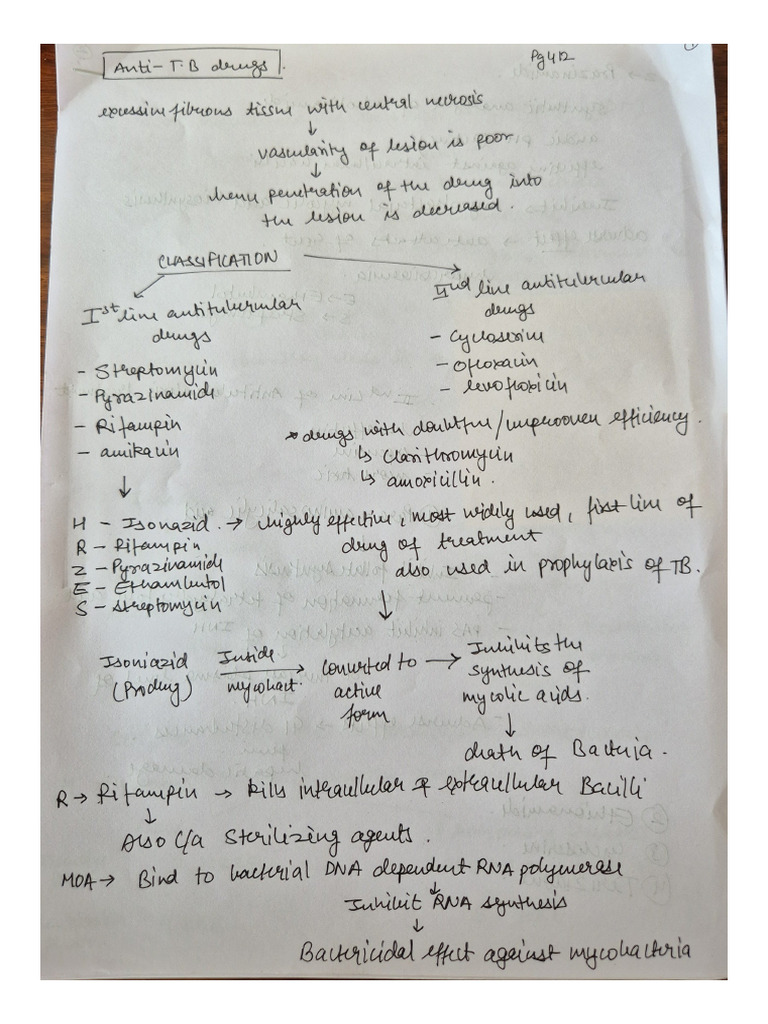 Anti-T.B drugs.
Pg 412
excessive fibrous tissue with central necrosis
↓
vascularity of lesion is poor
↓
hence penetration of the drug into
the lesion is decreased.
CLASSIFICATION
Ist line antitubercular
drugs
- Streptomycin
- Pyrazinamide
- Rifampin
- amikacin
↓
IInd line antitubercular
drugs
- Cycloserine
- Ofloxacin
- levofloxicin
* drugs with doubtful/unprooven efficiency.
↳ clarithromycin
↳ amoxicillin.
H - Isonazid. → highly effective, most widely used, first line of
drug of treatment
also used in prophylaxis of TB.
R - Rifampin
Z - Pyrazinamide
E - Ethambutol
S - Streptomycin
↓
Isoniazid
(Prodrug)
Inside
mycobact.
→ converted to
active
form
→ Inhibits the
synthesis of
mycolic acids.
↓
death of Bacteria.
R → Rifampin → Kills intracellular & extracellular Bacilli
↓
Also c/a Sterilizing agents.
MOA → Bind to bacterial DNA dependent RNA polymerase
↓
Inhibit RNA synthesis
↓
Bactericidal effect against mycobacteria